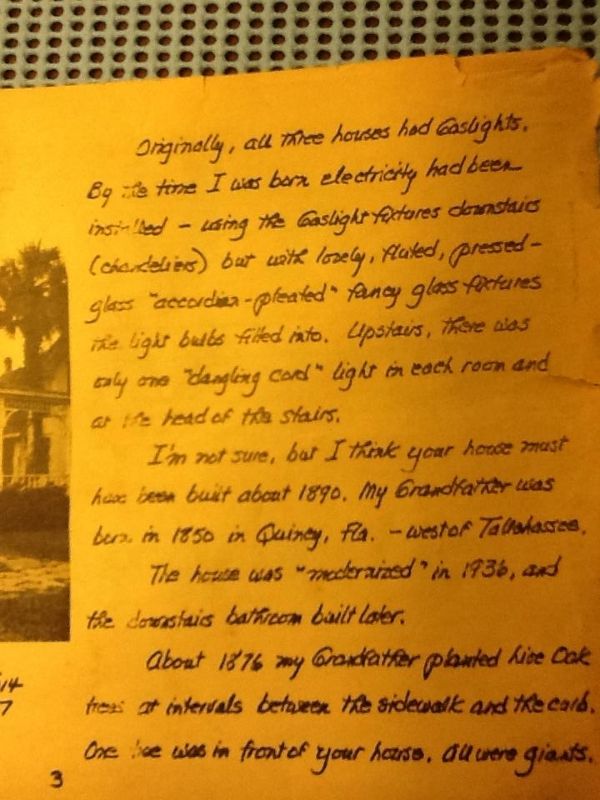 Originally, all three houses had Gaslights.
By the time I was born electricity had been
installed - using the Gaslight fixtures downstairs
(chandeliers) but with lovely, fluted, pressed-
glass "accordian-pleated" fancy glass fixtures
the light bulbs fitted into. Upstairs, there was
only one "dangling cord" light in each room and
at the head of the stairs.
I'm not sure, but I think your house must
have been built about 1890. My Grandfather was
born in 1850 in Quincy, Fla. - west of Tallahassee.
The house was "modernized" in 1936, and
the downstairs bathroom built later.
About 1876 my Grandfather planted Live Oak
trees at intervals between the sidewalk and the curb.
One tree was in front of your house. All were giants.
14
7
3